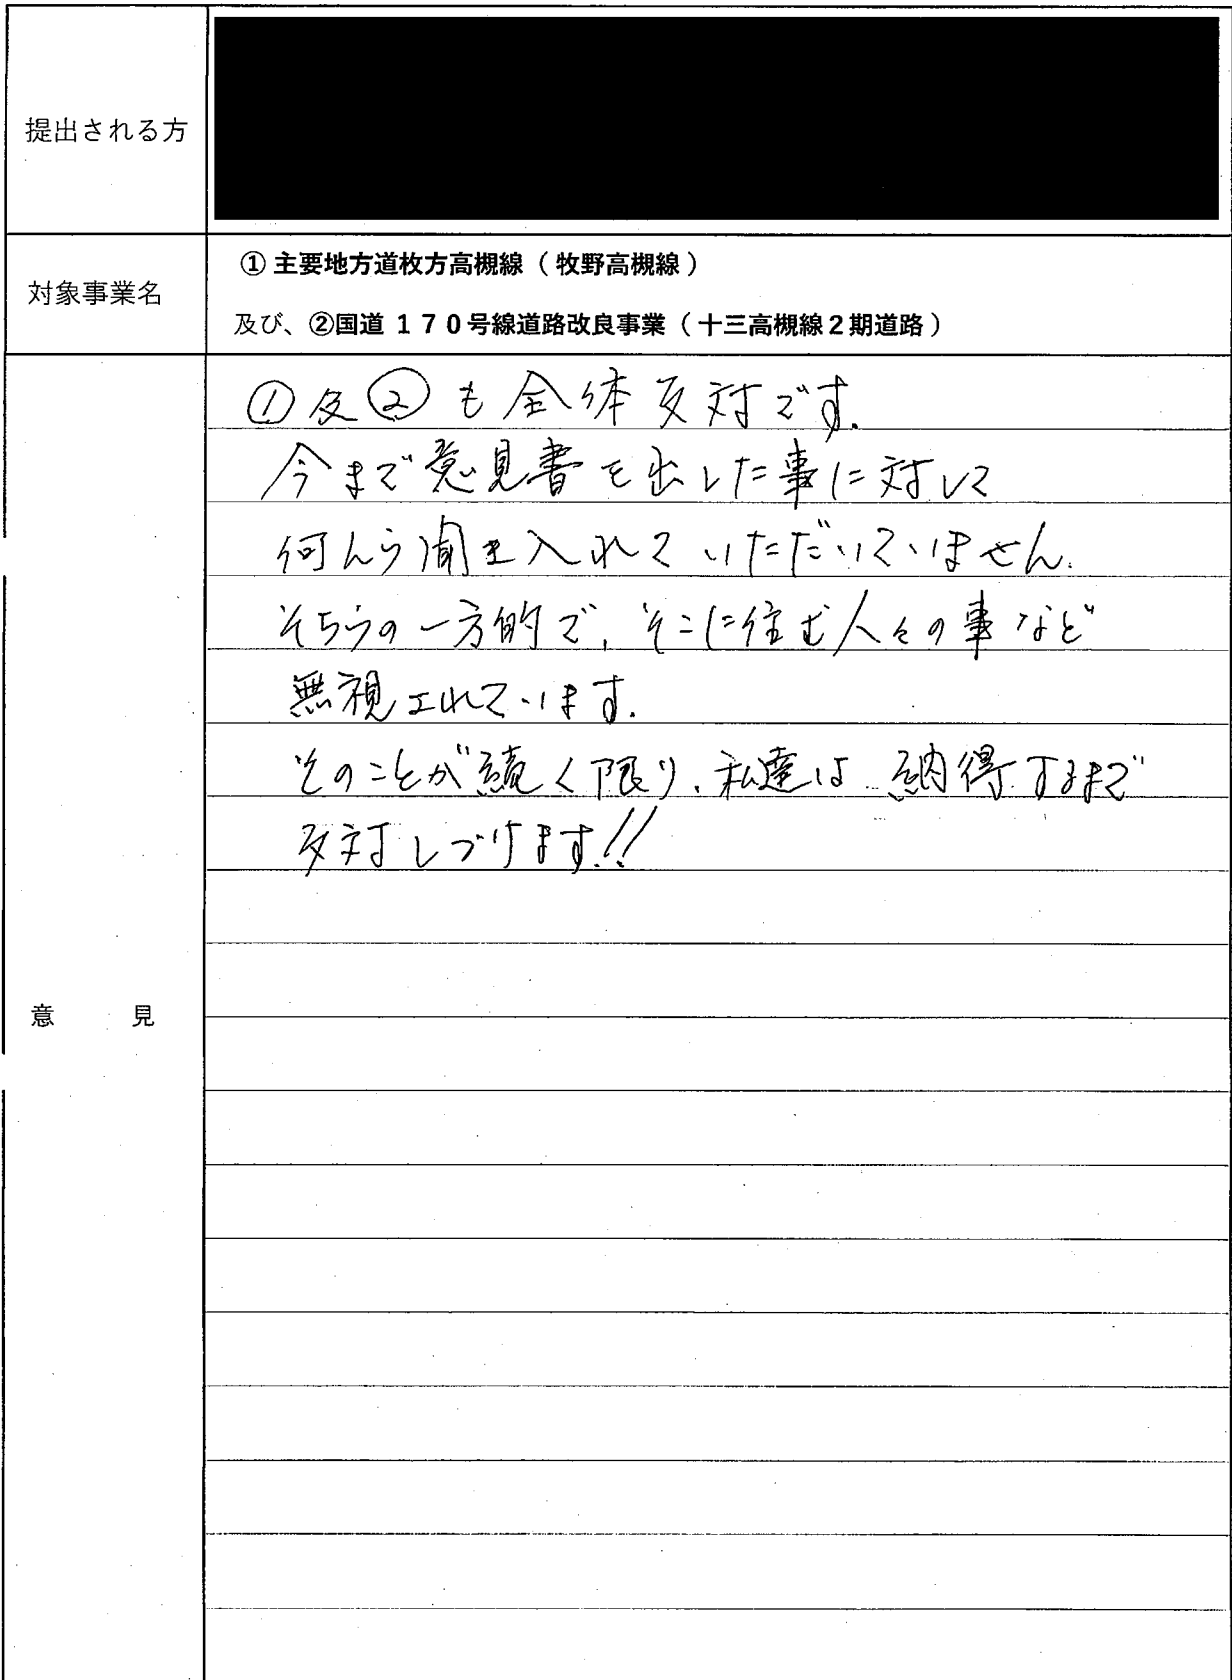 提出される方
対象事業名
① 主要地方道枚方高槻線(牧野高槻線)
及び、②国道 170号線道路改良事業(十三高槻線2期道路)
意 見
①及②も全体反対です。
今まで意見書を出した事に対して
何んら聞き入れていただいていません。
そちらの一方的で、そこに住む人々の事など
無視されています。
そのことが続く限り、私達は納得するまで
反対しつづけます!!